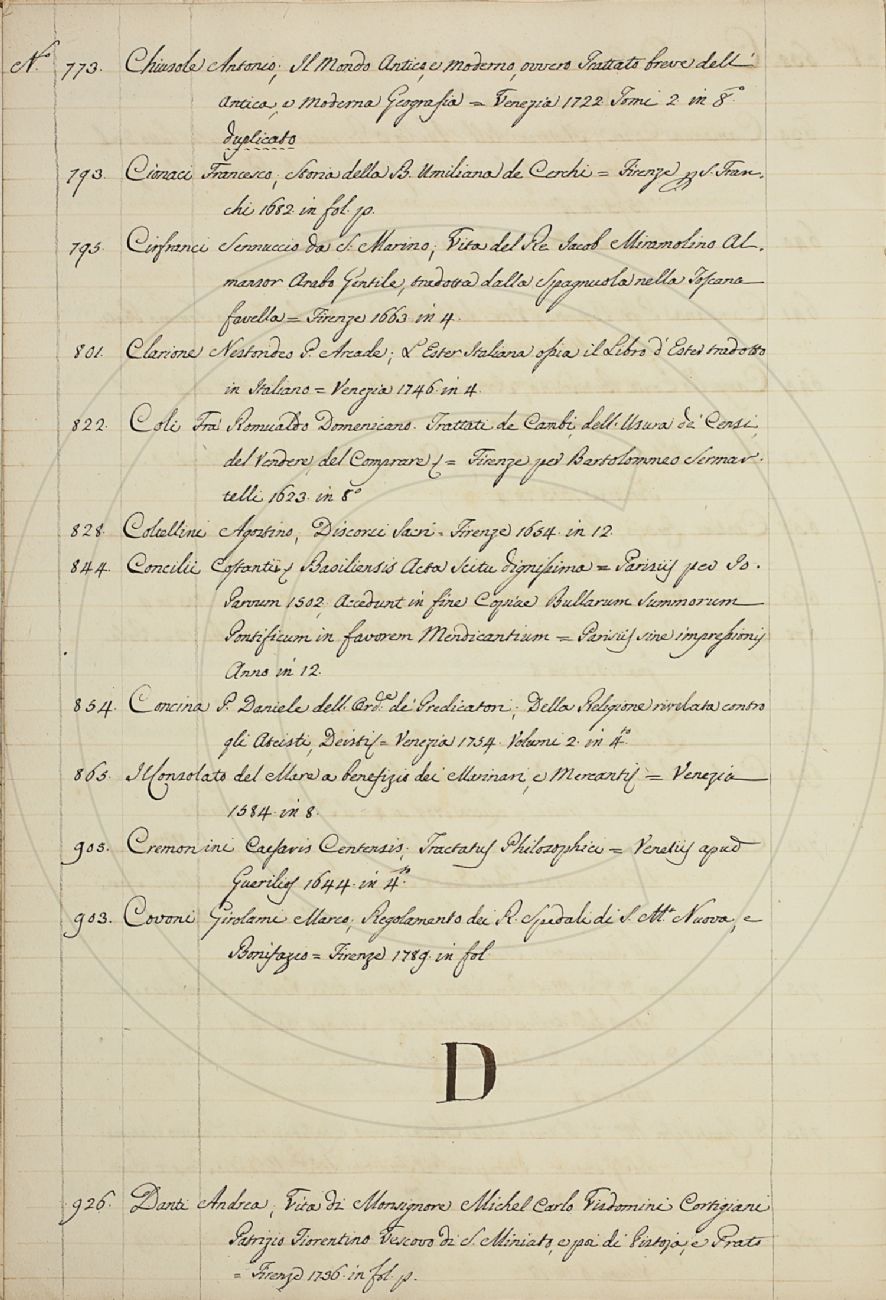 N.° 773. Chiusole Antonio; Il Mondo Antico, e moderno, ovvero Trattato breve dell'
antica, e moderna Geografia = Venezia 1722. Tomi 2 in 8.°
duplicato
793. Cionaci Francesco; Storia della B. Umiliana de Cerchi = Firenze p S. Fran-
chi 1682. in fol. p.
795. Cirfranci Sennuccio da S. Marino; Vita del Re Jacob Miramolino Al-
mansor Arabo Gentile, tradotta dalla Spagnuola nella Toscana
favella = Firenze 1663. in 4.
801. Clarione Nestorideo P. Arcade; L'Ester Italiana ossia il Libro d'Ester tradotto
in Italiano = Venezia 1746. in 4.
822. Coli Fra Romualdo Domenicano. Trattati de Cambi, dell'Usura de' Censi,
del Vendere, del Comprare = Firenze per Bartolommeo Sermar-
telli 1623. in 8°
828. Coltellini Agostino; Discorsi Sacri = Firenze 1654. in 12.
844. Concilii Basiliensis Acta Scitu dignissima = Parisiis per Jo.
Parvum 1502. Accedunt in fine Copiae Bullarum Summorum
Pontificum in favorem Mendicantium = Parisiis sine impressionis
Anno in 12.
854. Concina P. Daniele dell'Ord.e de' Predicatori; Della Religione rivelata contro
gli Ateisti, Deisti = Venezia 1754. Volumi 2. in 4.to
865. Il Consolato del Mare a benefizio dei Marinari, e Mercanti = Venezia
1584. in 8.
905. Cremonini Caesaris Centensis; Tractatus Philosophici = Venetiis apud
Guerilios 1644. in 4.to
903. Covoni Girolami Marco; Regolamento dei R. Spedali di S. M.a Nuova, e
Bonifazio = Firenze 1789. in fol
D
926. Danti Andrea; Vita di Monsignore Michel Carlo Visdomini Cortigiani
Patrizio Fiorentino Vescovo di S. Miniato, e poi di Pistoja, e Prato
= Firenze 1736. in fol. p.